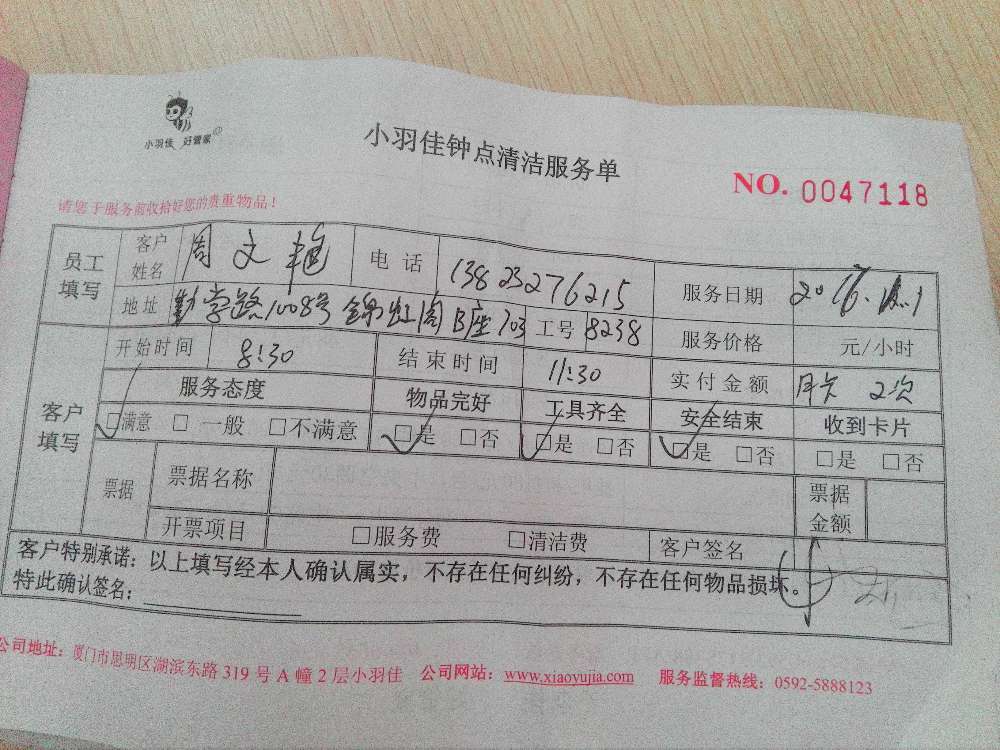 小羽佳 好管家
小羽佳钟点清洁服务单
NO. 0047118
请您于服务前收拾好您的贵重物品！
员工填写 客户姓名 周文艳 电话 13823276215 服务日期 2016.
地址 勤学路1008号锦虹阁B座703 工号 8238 服务价格 元/小时
客户填写 开始时间 8:30 结束时间 11:30 实付金额 月卡 2次
服务态度 物品完好 工具齐全 安全结束 收到卡片
☑满意 □一般 □不满意 ☑是 □否 ☑是 □否 ☑是 □否 □是 □否
票据 票据名称 票据金额
开票项目 □服务费 □清洁费 客户签名
客户特别承诺：以上填写经本人确认属实，不存在任何纠纷，不存在任何物品损坏。
特此确认签名：
公司地址：厦门市思明区湖滨东路 319 号 A 幢 2 层小羽佳 公司网站：www.xiaoyujia.com 服务监督热线：0592-5888123